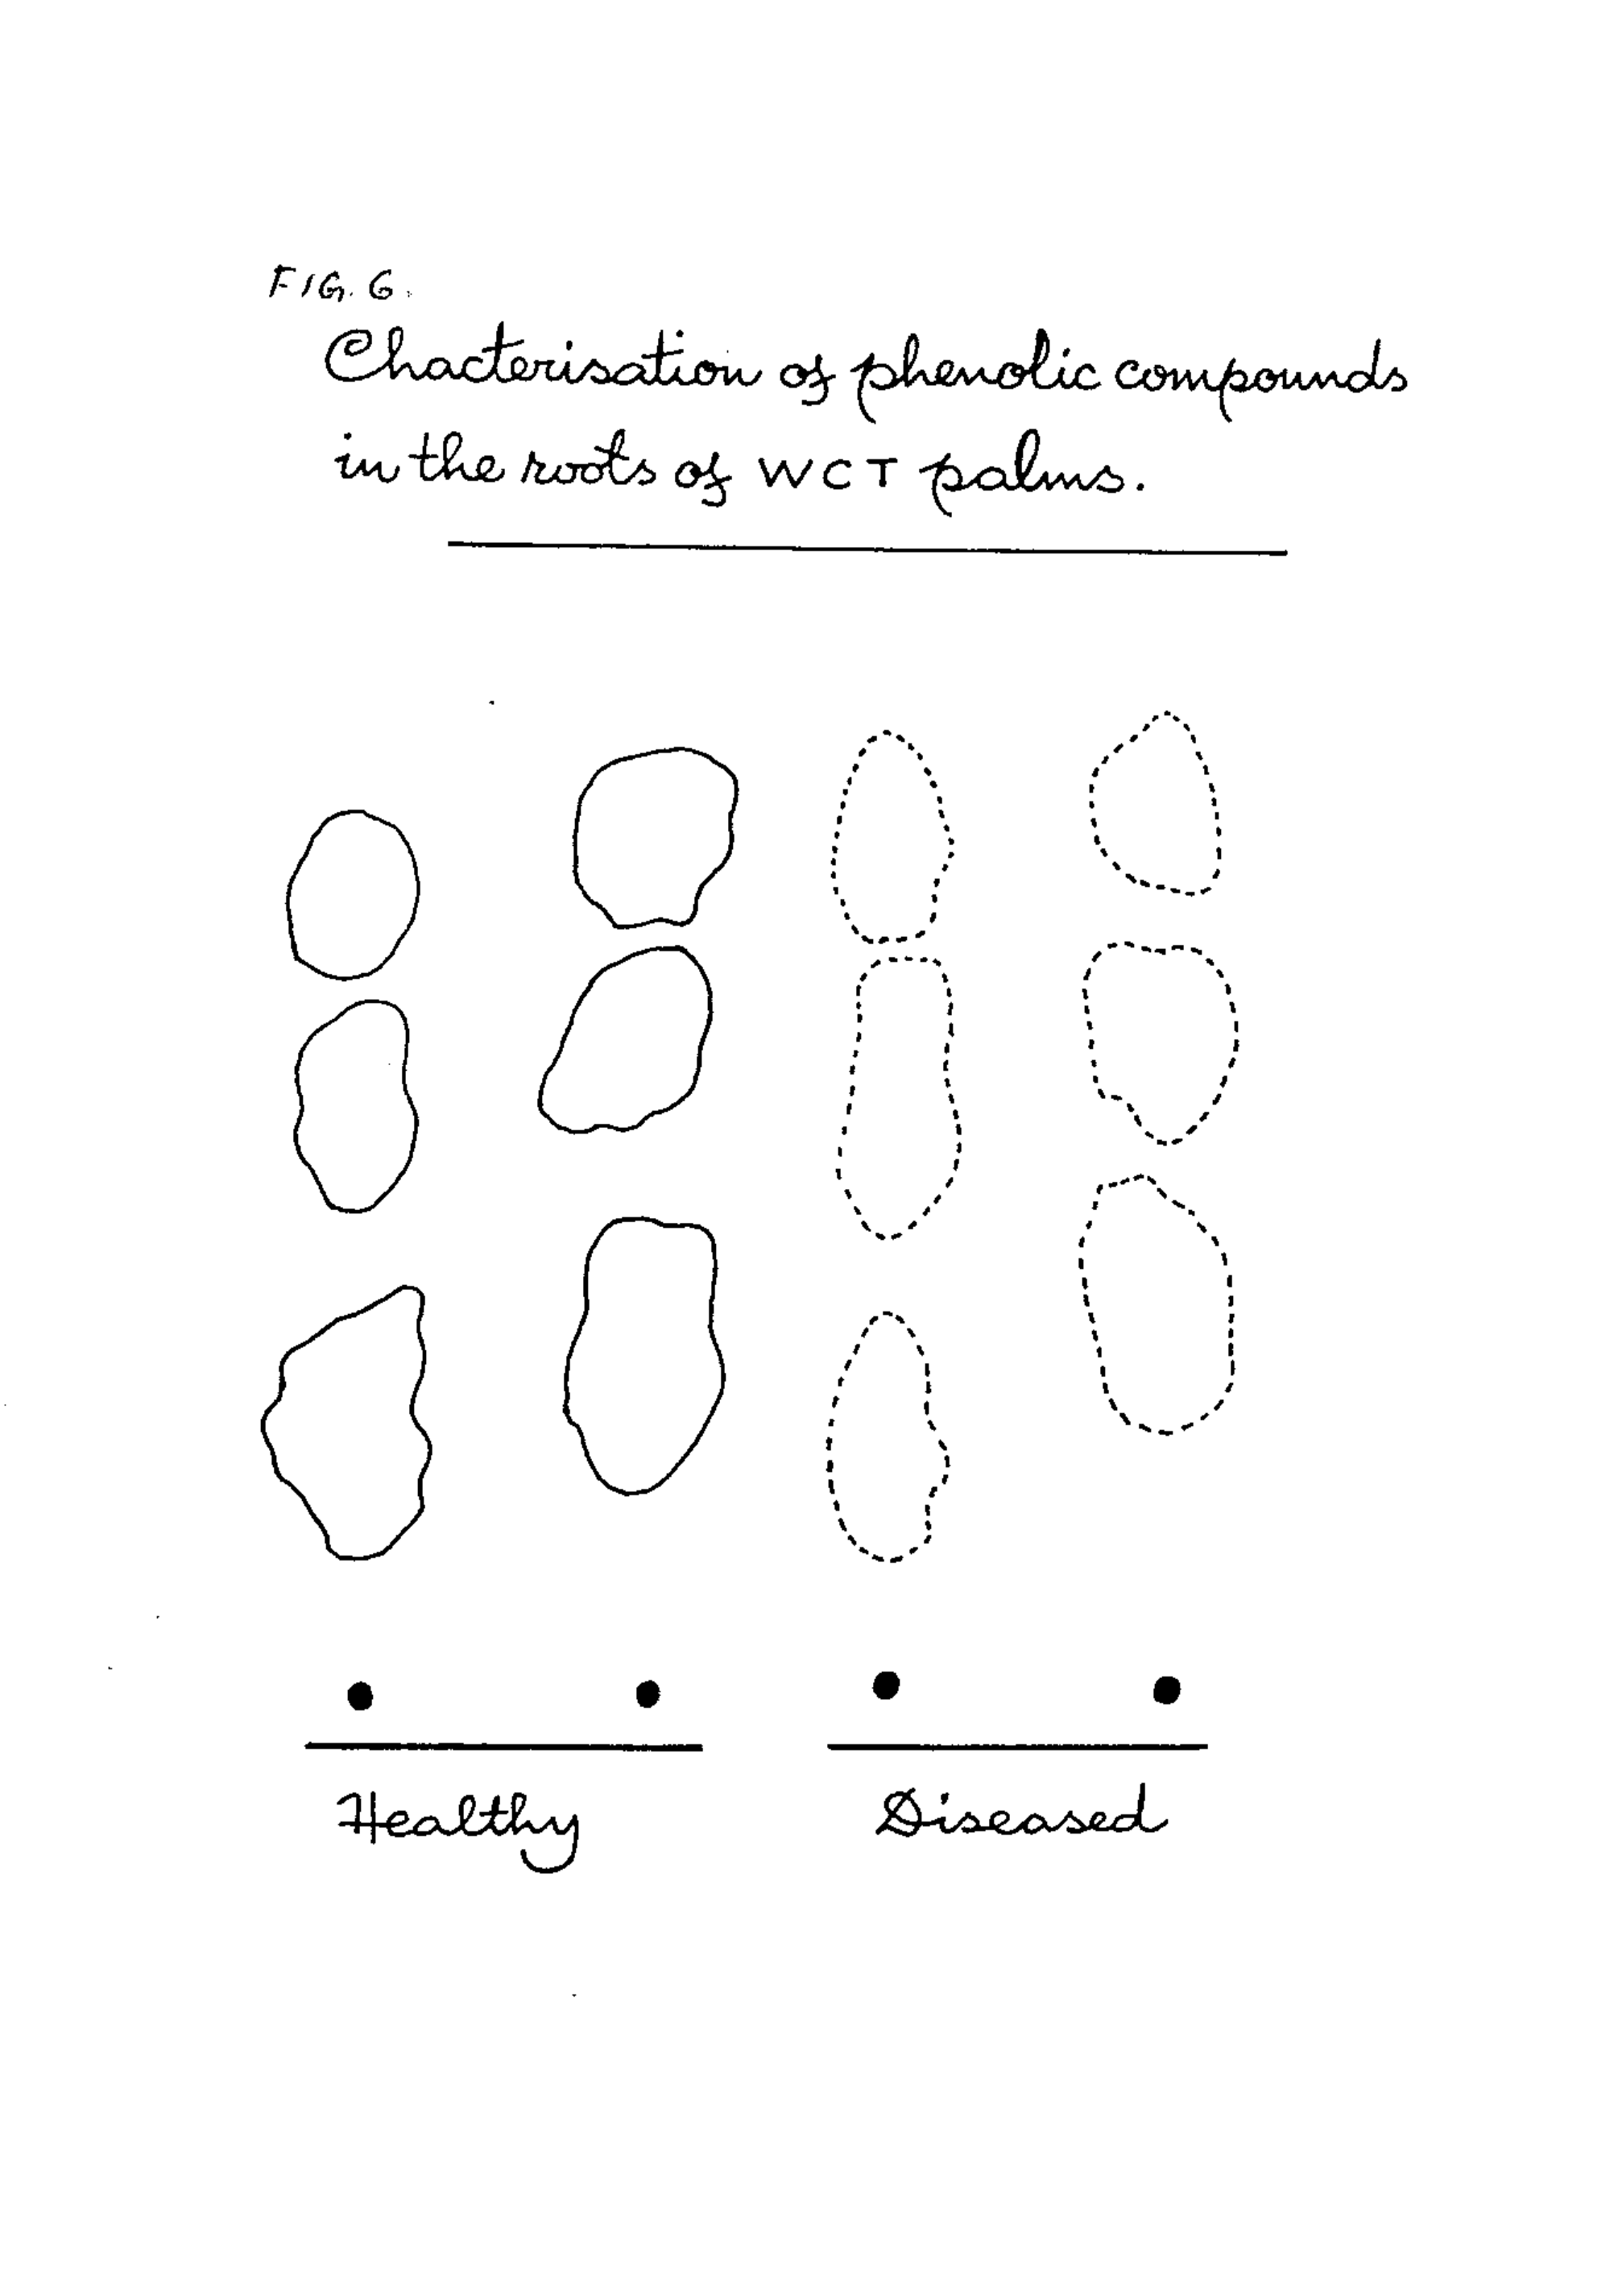 FIG. 6.
Chacterisation of phenolic compounds
in the roots of WCT palms.
Healthy
Diseased